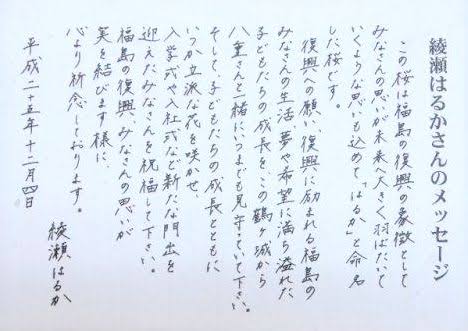 綾瀬はるかさんのメッセージ
この桜は福島の復興の象徴として
みなさんの思いが未来へ大きく羽ばたいて
いくような思いも込めて「はるか」と命名
した桜です。
復興への願い、復興に励まれる福島の
みなさんの生活、夢や希望に満ち溢れた
子どもたちの成長を、この鶴ヶ城から
八重さんと一緒に、いつまでも見守っていて下さい。
そして、子どもたちの成長とともに
いつか立派な花を咲かせ、
入学式や入社式など新たな門出を
迎えたみなさんを祝福して下さい。
福島の復興、みなさんの思いが
実を結びます様に
心より祈念しております。
平成二十五年十二月四日
綾瀬はるか